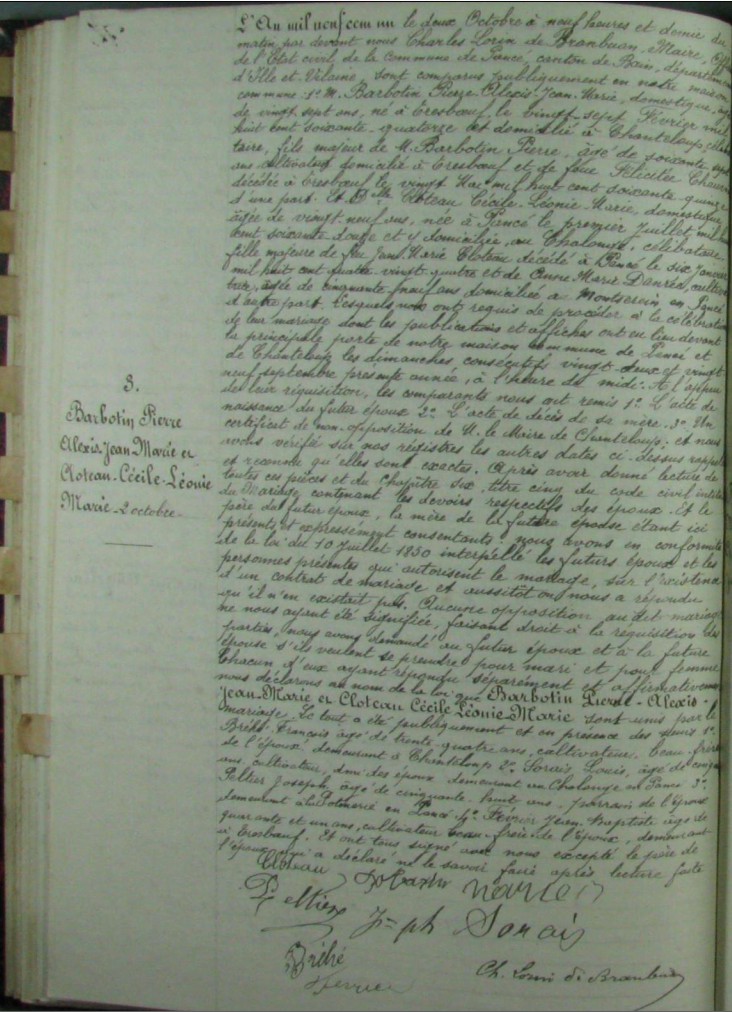 3.
Barbotin Pierre
Alexis Jean Marie et
Cloteau Cécile Léonie
Marie - 2 octobre -
L'An mil neuf cent un le deux Octobre à neuf heures et demie du
matin par devant nous Charles Lorin de Branbuan, Maire, Off
de l'Etat civil de la commune de Pancé, canton de Bain, départem
d'Ille et Vilaine, sont comparus publiquement en notre maison
commune : 1° M. Barbotin Pierre Alexis Jean Marie, domestique,
de vingt sept ans, né à Tresbœuf, le vingt sept Février mil
huit cent soixante quatorze et domicilié à Chanteloup, céliba
taire, fils majeur de M. Barbotin Pierre, âgé de soixante sept
ans cultivateur domicilié à Tresbœuf et de feue Félicitée
décédée à Tresbœuf le vingt Mai mil huit cent soixante quinze
d'une part. Et Delle Cloteau Cécile Léonie Marie, domestique,
âgée de vingt neuf ans, née à Pancé le premier Juillet mil huit
cent soixante douze et y domiciliée, au Chalonge, célibataire
fille majeure de feu Jean Marie Cloteau décédé à Pancé le six Janvier
mil huit cent quatre vingt quatre et de Marie Danrée, cultiva
trice, âgée de cinquante neuf ans domiciliée à en Pancé
d'autre part. Lesquels nous ont requis de procéder à la célébration
de leur mariage dont les publications et affiches ont eu lieu devant
la principale porte de notre maison commune de Pancé et
de Chanteloup les dimanches consécutifs vingt deux et vingt
neuf septembre présente année, à l'heure de midi. A l'appui
de leur réquisition, les comparants nous ont remis 1° L'acte de
naissance du futur époux 2° L'acte de décès de sa mère. 3° Un
certificat de non-opposition de M. le Maire de Chanteloup ; et nous
avons vérifié sur nos régistres les autres dates ci-dessus rappel
et reconnu qu'elles sont exactes. Après avoir donné lecture de
toutes ces pièces et du chapître six, titre cinq du code civil intitu
du Mariage, contenant les devoirs respectifs des époux. Et le
père du futur époux, la mère de la future épouse étant ici
présents et expressément consentants ; nous avons en conformité
de la loi du 10 Juillet 1850 interpellé les futurs époux et les
personnes présentes qui autorisent le mariage, sur l'existence
d'un contrat de mariage et aussitôt on nous a répondu
qu'il n'en existait pas. Aucune opposition au dit mariage
ne nous ayant été signifiée, faisant droit à la réquisition des
parties, nous avons demandé au futur époux et à la future
épouse s'ils veulent se prendre pour mari et pour femme
Chacun d'eux ayant répondu séparément et affirmativement
nous déclarons au nom de la loi que Barbotin Pierre-Alexis-
Jean-Marie et Cloteau Cécile Léonie Marie sont unis par le
mariage. Le tout a été publiquement et en présence des sieurs 1°
Bréhé François âgé de trente quatre ans, cultivateur, beau-frère
de l'époux, demeurant à Chanteloup 2° Sorais Louis, âgé de cinquan
ans, cultivateur, ami des époux demeurant au Chalonge en Pancé 3°
Peltier Joseph, âgé de cinquante huit ans, parrain de l'épouse
demeurant à la en Pancé 4° Jean Baptiste âgé de
quarante et un ans, cultivateur beau-frère de l'époux, demeurant
à Tresbœuf. Et ont tous signé avec nous excepté le père de
l'époux qui a déclaré ne le savoir faire après lecture faite
Cloteau
Peltier Jph Sorais
Bréhé
Ch. Lorin de Branbuan